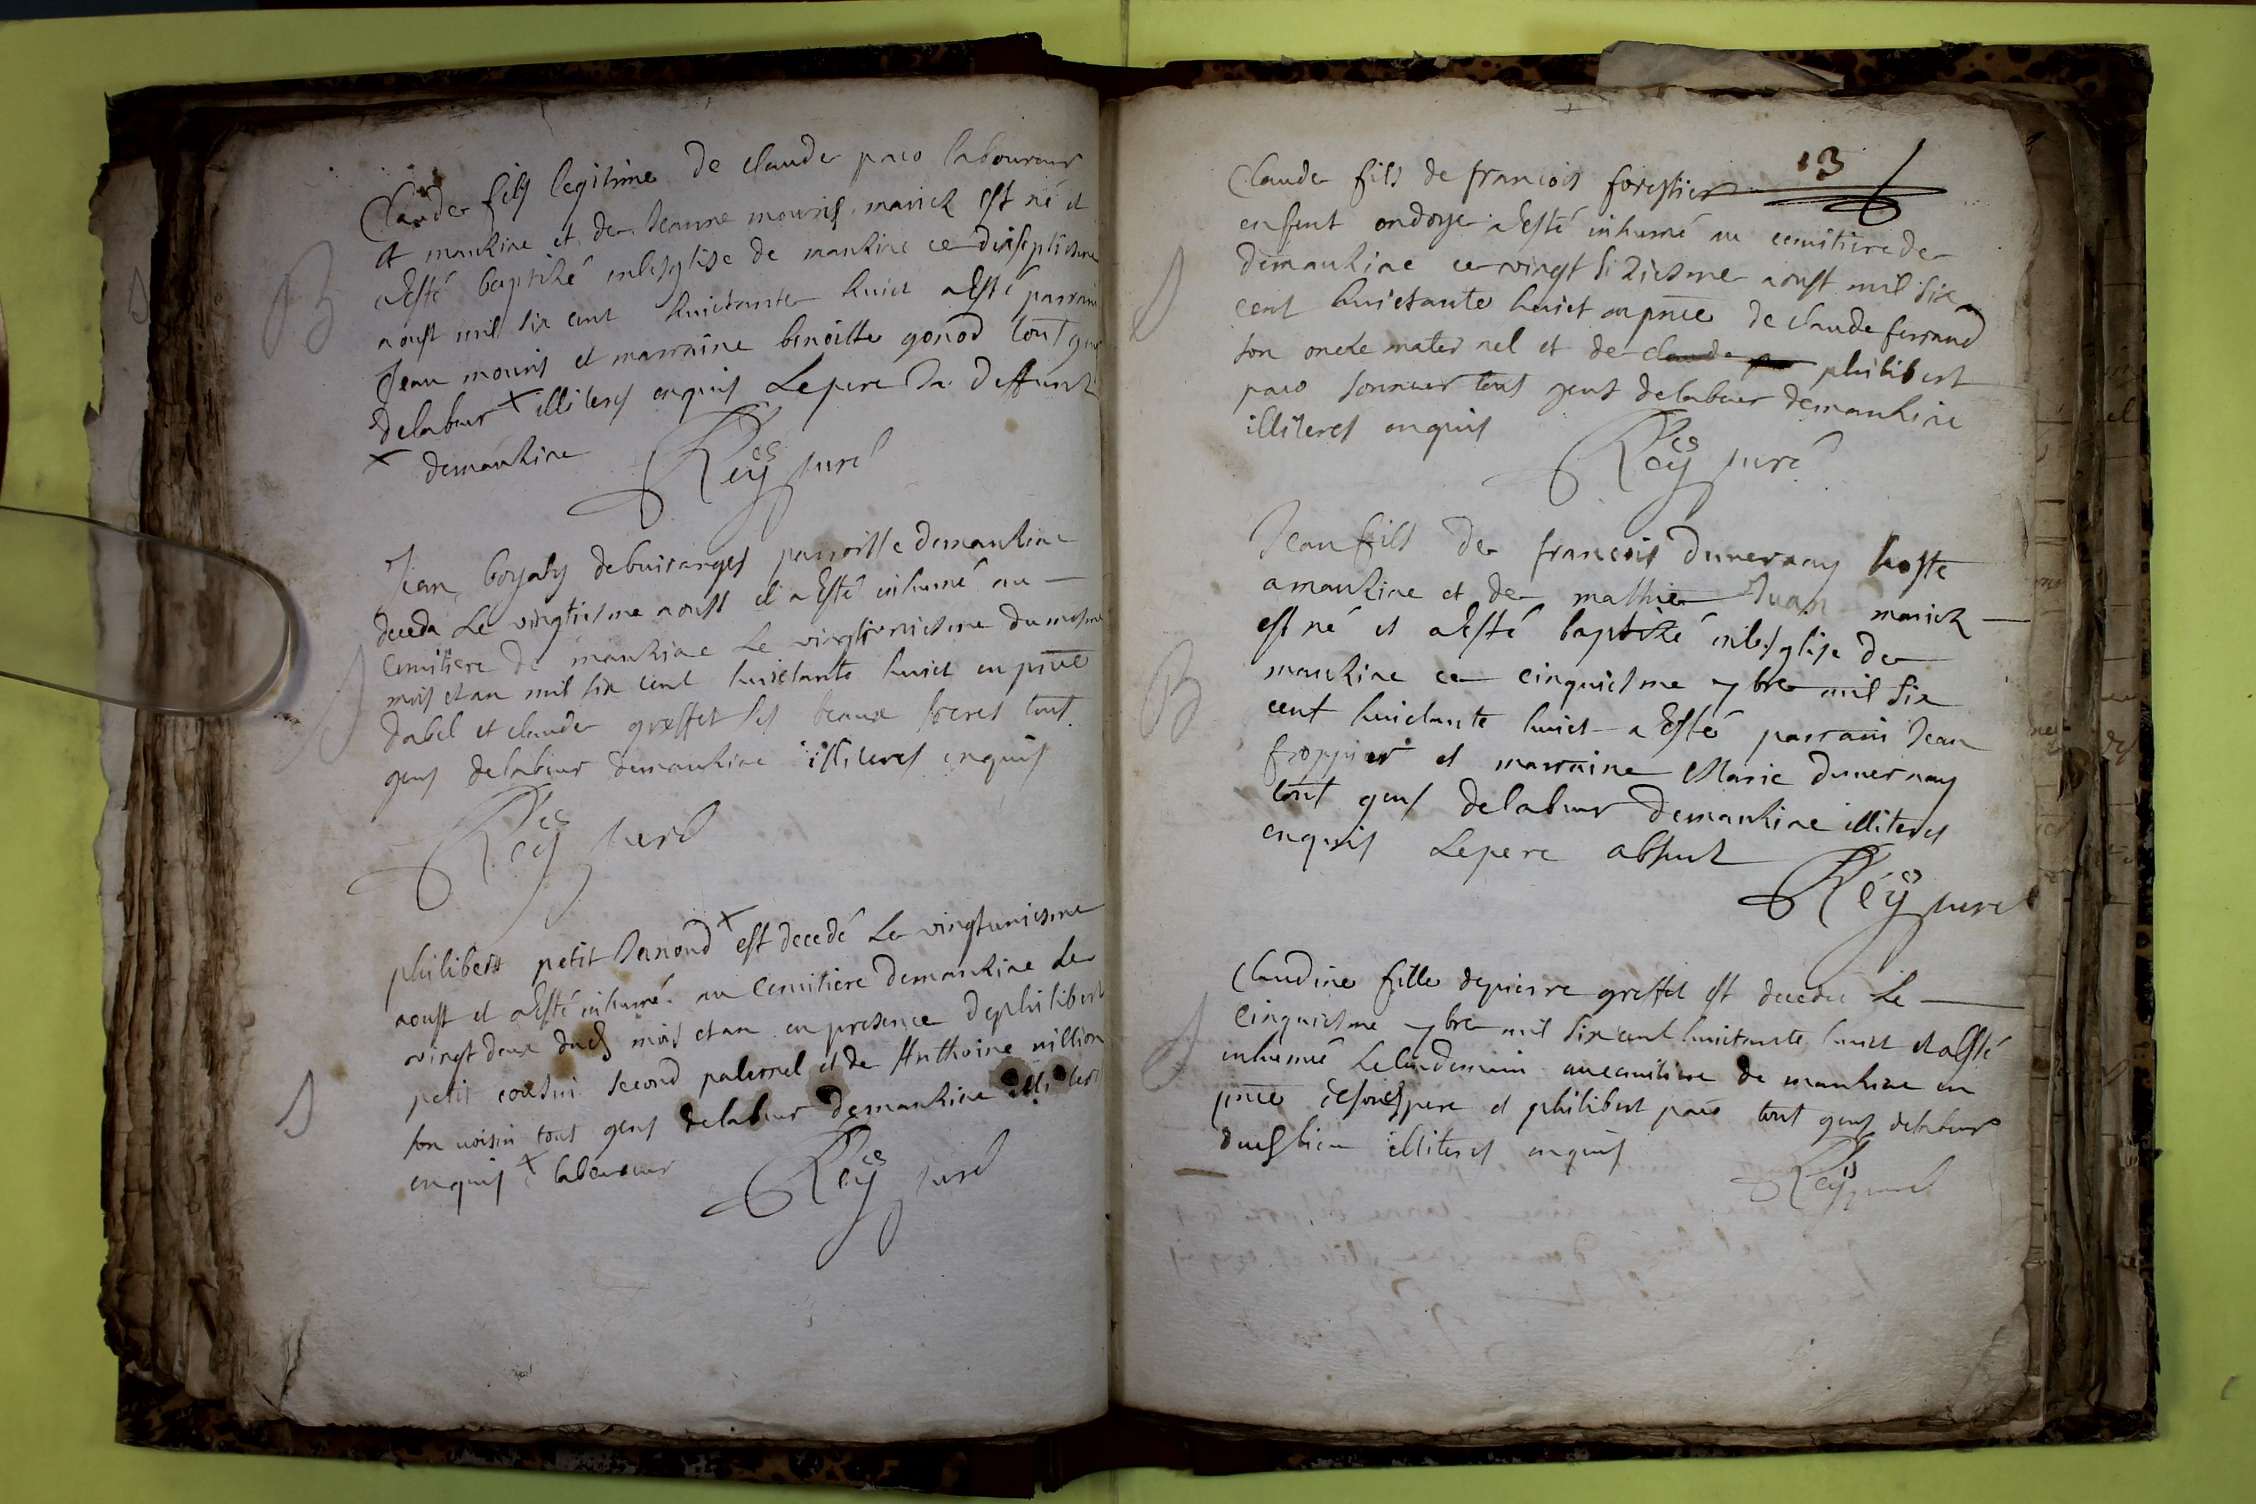 Claude fils legitime de claude paco laboureur
A mankine et de Jeanne mouris mariez est né et
a esté baptizé en lesglise de mankine ce dixseptiesme
aoust mil six cent huictante huict a esté parrain
Jean mouris et marraine benoitte gonod tout gens
delabeur × illiteres enquis Le pere Ja deffunct
× demankine
Reÿ curé
B
Jean boyaty debuiranges parroisse demankine
deceda Le vingtiesme aoust et a esté inhumé au
cemitiere de mankine Le vingtuniesme du mesme
mois et an mil six cent huictante huict en pnce
dabel et claude greffet ses beaux freres tout
gens delabeur demankine illiteres enquis
Reÿ curé
S
philibert petit Janond × est decedé Le vingtuniesme
aoust et a esté inhumé au Cemitiere demankine Le
vingt deux dud mois et an en presence dephilibert
petit cousin second paternel et de Anthoine nillion
son voisin tous gens delabeur demankine illiteres
enquis × laboureur
Reÿ curé
S
13
Claude fils de francois forestier
enfent ondoye a esté inhumé au cemitiere de
demankine ce vingt siziesme aoust mil six
cent huictante huict en pnce de claude ferrand
son oncle maternel et de claude philibert
paco sonneur tous gens delabeur demankine
illiteres enquis
Reÿ curé
S
Jean fils de francois duvernay hoste
amankine et de mathie Juan mariez
est né et a esté baptizé en lesglise de
mankine ce cinquiesme 7bre mil six
cent huictante huict a esté parrain Jean
froppier et marraine Marie duvernay
tout gens delabeur demankine illiteres
enquis Le pere absent
Reÿ curé
B
Claudine fille depierre greffet est decedée Le
cinquiesme 7bre mil six cent huictante huict et a esté
inhumé Le lendemain au cemitiere de mankine en
pnce de sond pere et philibert paco tout gens delabeur
dud lieu illiteres enquis
Reÿ curé
S